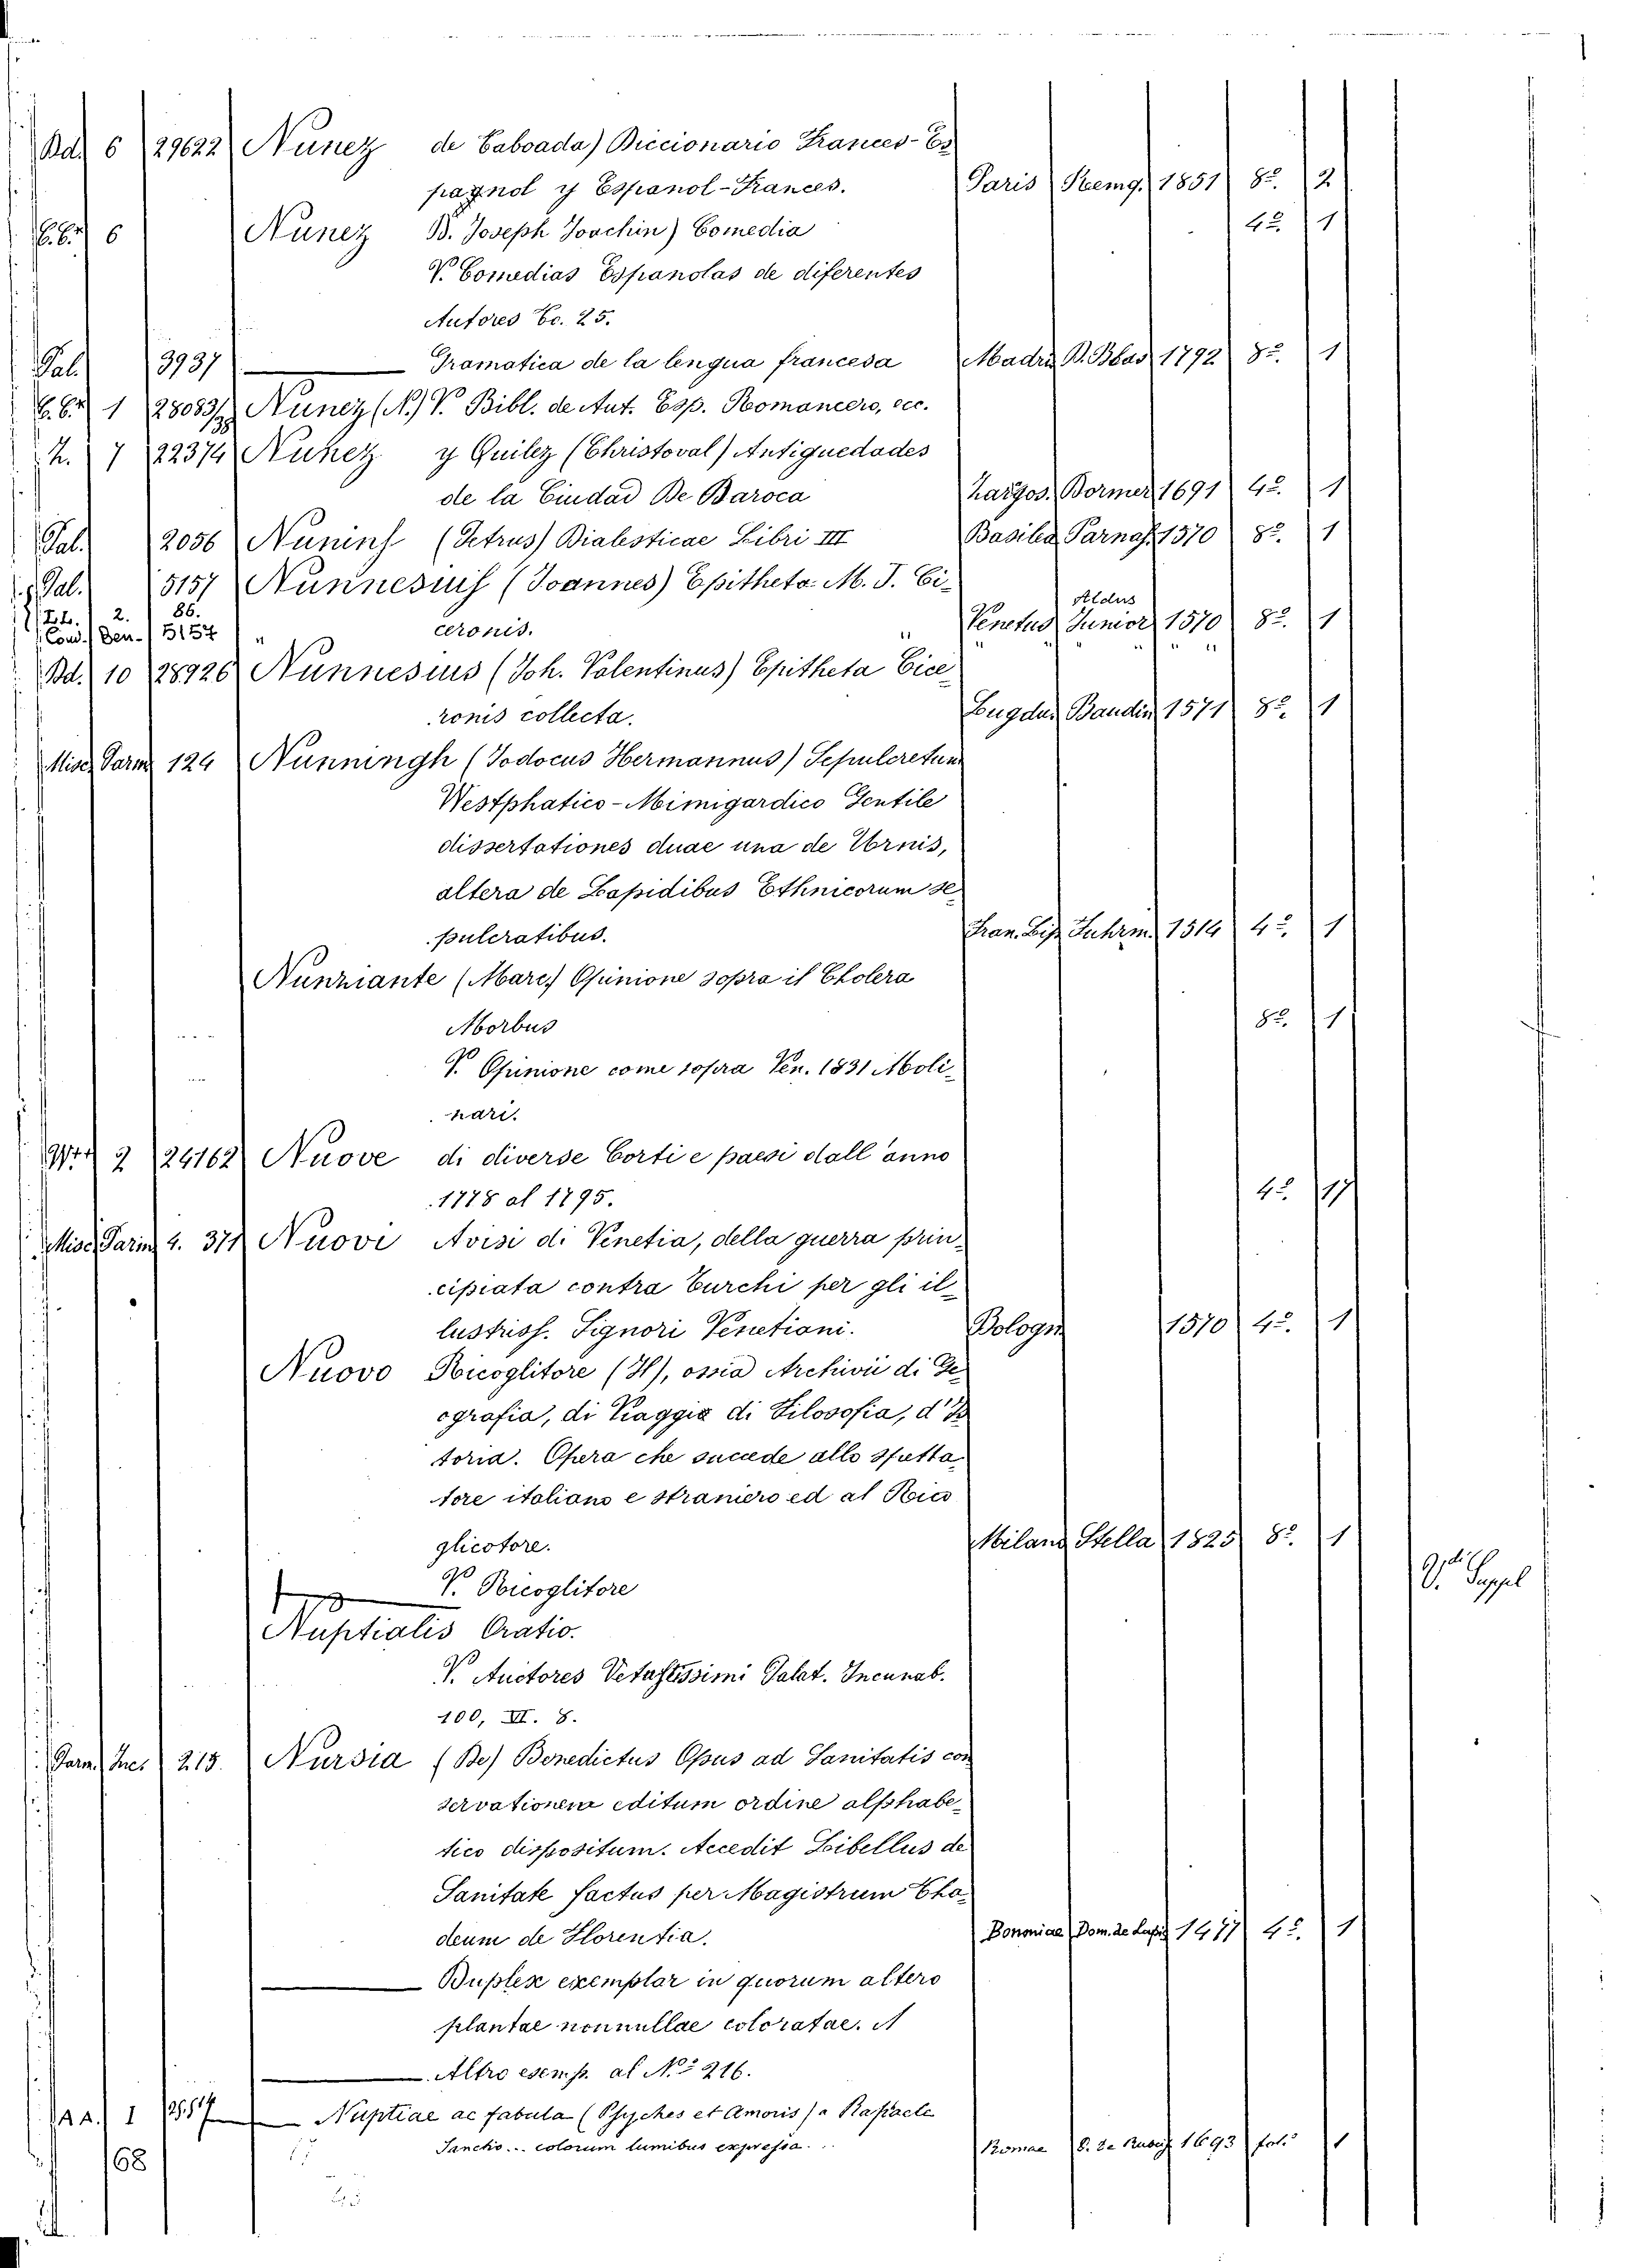 Bd. 6 29622 Nunez de Taboada) Diccionario Frances-Es
pagnol y Espanol-Frances. Paris Remg. 1851 8º. 2
E.C. 6 Nunez D. Joseph Joachin) Comedia 4º. 1
V. Comedias Espanolas de diferentes
Autores Ec. 25.
Pal. 3937 Gramatica de la lengua francesa Madri B. Blas 1792 8º. 1
1 28083/ Nunez (N.) V. Bibl. de Aut. Esp. Romancero, ecc.
7 22374 Nunez y Quilez (Christoval) Antiguedades
de la Ciudad De Daroca Zargos. Dormer 1691 4º. 1
Pal. 2056 Nunins (Petrus) Dialesticae Libri III Basilea Parnas. 1570 8º. 1
Pal. 5157 Nunnesius (Joannes) Epitheta M. T. Ci-
2. 86. ceronis. Venetus Aldus Junior 1570 8º. 1
Cond. Den. 5157 " " " " "
Bd. 10 28926 Nunnesius (Joh. Valentinus) Epitheta Cice
ronis collecta. Lugdun Baudin 1571 8º. 1
Misc. Parm 124 Nunningh (Jodocus Hermannus) Sepulcretum
Westphatico-Mimigardico Gentile
dissertationes duae una de Urnis,
altera de Lapidibus Ethnicorum se
pulcratibus. Fran. Lip Fuhrm. 1514 4º. 1
Nunziante (Marc) Opinione sopra il Cholera
Morbus 8º. 1
V. Opinione come sopra Ven. 1831 Moli
nari.
2 24162 Nuove di diverse Corti e paesi dall'anno
1778 al 1795. 4º. 17
Misc. Parm 4. 371 Nuovi Avisi di Venetia, della guerra prin
cipiata contra Turchi per gli il
lustriss. Signori Venetiani. Bologn 1570 4º. 1
Nuovo Ricoglitore (Il), ossia Archivii di Ge
ografia, di Viaggia di Filosofia, d'Is
toria. Opera che succede allo spetta
tore italiano e straniero ed al Rico
glicotore. Milano Stella 1825 8º. 1
V. Ricoglitore V. Suppl
Nuptialis Oratio.
V. Auctores Vetustissimi Palat. Incunab.
100, VI. 8.
Parm. Inc. 215. Nursia (De) Benedictus Opus ad Sanitatis con
servationem editum ordine alphabe
tico dispositum. Accedit Libellus de
Sanitate factus per Magistrum Tha
deum de Florentia. Bononiae Dom. de Lapis 1477 4º. 1
Duplex exemplar in quorum altero
plantae nonnullae coloratae.
Altro esemp. al Nº 216.
A A. 1 Nuptiae ac fabula (Psyches et Amoris) a Rafaele
Sancho... colorum lumibus expressa... Romae 1693 fol. 1
68